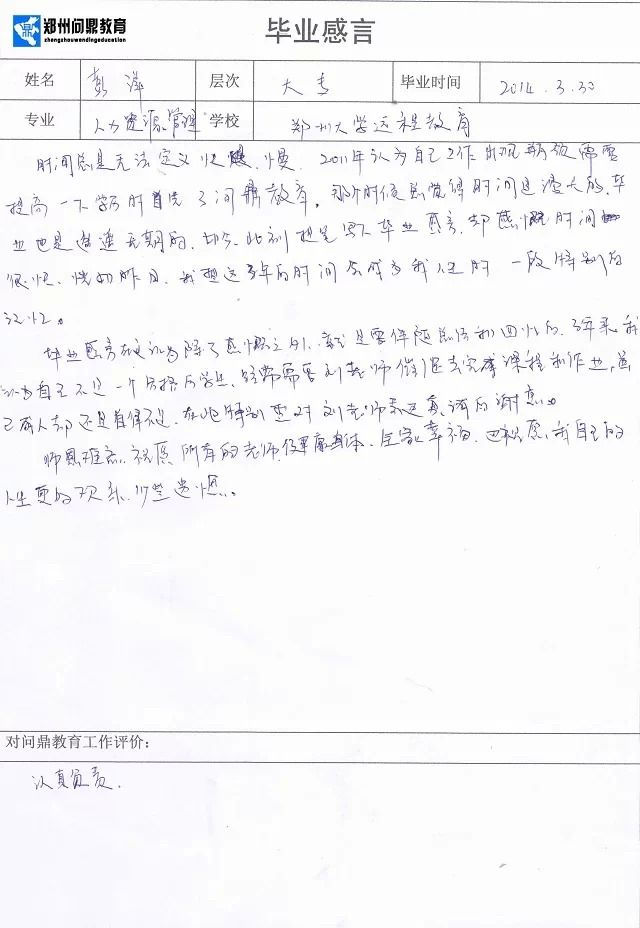 郑州问鼎教育
zhengzhouwendingeducation
毕业感言
姓名 彭萍 层次 大专 毕业时间 2014.3.30
专业 人力资源管理 学校 郑州大学远程教育
时间总是无法定义快慢。2011年认为自己工作出现瓶颈需要
提高一下学历时首选了问鼎教育,那个时侯总觉得时间是漫长的,毕
业也是遥遥无期的,如今,此刻提笔写下毕业感言,却感慨时间
很快,恍如昨日,我想这3年的时间会成为我人生的一段特别的
记忆。
毕业感言在我认为除了感慨之外,就是要伴随总结和回忆的,3年来我
认为自己不是一个合格的学生,经常需要刘老师催促去完成课程和作业,
在此特别要对刘老师表达真诚的谢意。
师恩难忘,祝愿所有的老师身体,全家幸福,也祝愿我自己的
人生更的欢乐,少些遗憾。
对问鼎教育工作评价:
认真负责.